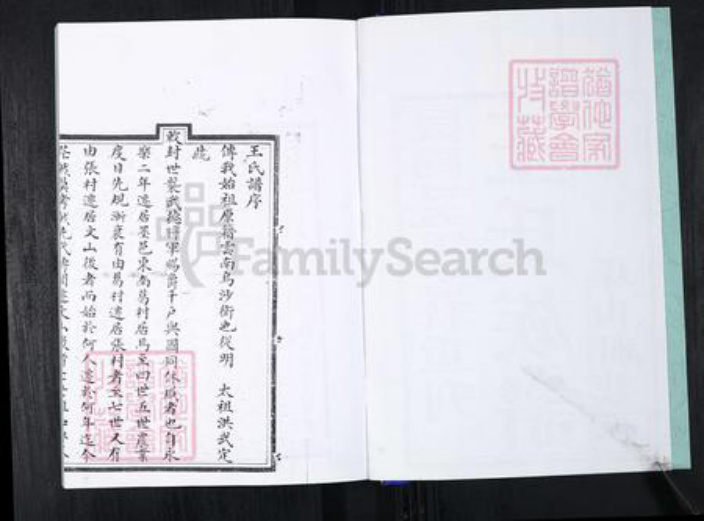 王氏譜序
傳我始祖原籍雲南烏沙衛也從明 太祖洪武定
敕封世襲武德將軍賜爵千戶與國同休戚者也自永
樂二年遷居墨邑東南葛村居焉至四世五世農業
度日先規漸衰有由葛村遷居張村者至七世又有
由張村遷居文山後者而始於何人遷於何年迄今
猶他家
譜學會
特藏
FamilySearch